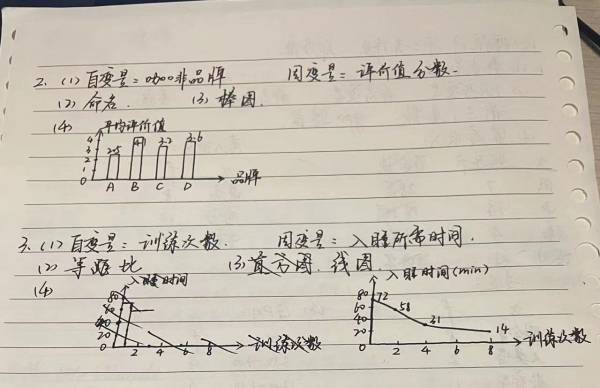 2. (1) 自变量=咖啡品牌 因变量=评价值分数.
(2) 命名. (3) 棒图.
(4) 平均评价值
4
3
2
1
0
2.5 4.1 3.2 3.6
A B C D 品牌
3. (1) 自变量=训练次数. 因变量=入睡所需时间.
(2) 等距比 (3) 直方图.线图.
(4) 入睡时间 入睡时间(min)
80
60
40
20
0
2 4 6 8 训练次数
80
60
40
20
0
72 58 31 14
2 4 6 8 训练次数